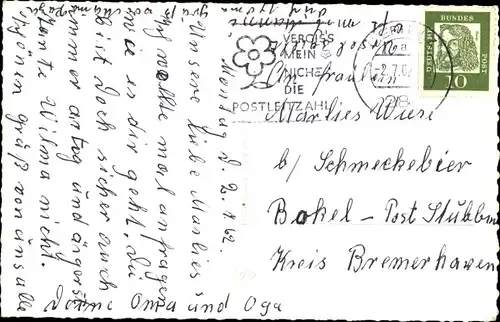 Montag d. 2.7.62.
Unsere liebe Marlies
Ich wollte mal anfragen
wie es dir geht. Du
bist doch sicher auch
immer artig und ärgerst
Tante Wilma nicht.
Schönen gruß von uns alle
Deine Oma und Oga
VERGISS
MEIN
NICHT
DIE
POSTLEITZAHL
DEUTSCHE
BUNDES
POST
10
An Fräulein
Marlies Wiese
b/ Schmeckebier
Bokel - Post Stubben
Kreis Bremerhaven